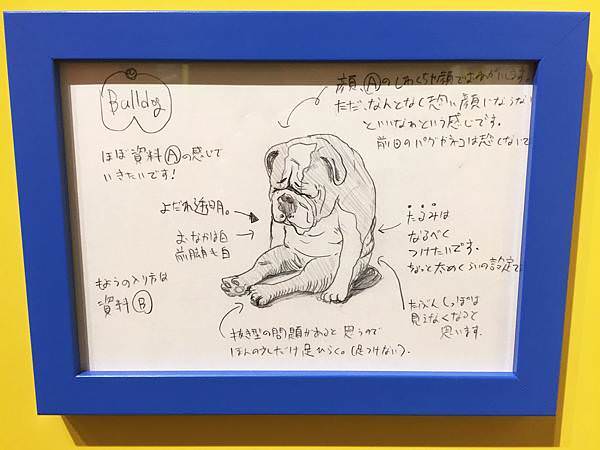 Bulldog
ほぼ資料Ⓐの感じで
いきたいです!
顔、Ⓐのしわくちゃ顔でおねがいします。
ただ、なんとなく恐い顔にならない
といいなぁという感じです。
前回のパグやネコは恐くないで
よだれ透明。
おなかは白
前脚も白
たるみは
なるべく
つけたいです。
ちょっと太めくらいの設定で
もようの入り方は
資料Ⓑ
たぶんしっぽは
見えなくなると
思います。
抜き型の問題があると思うので
ほんの少しだけ足ひらく。(足つけない)。